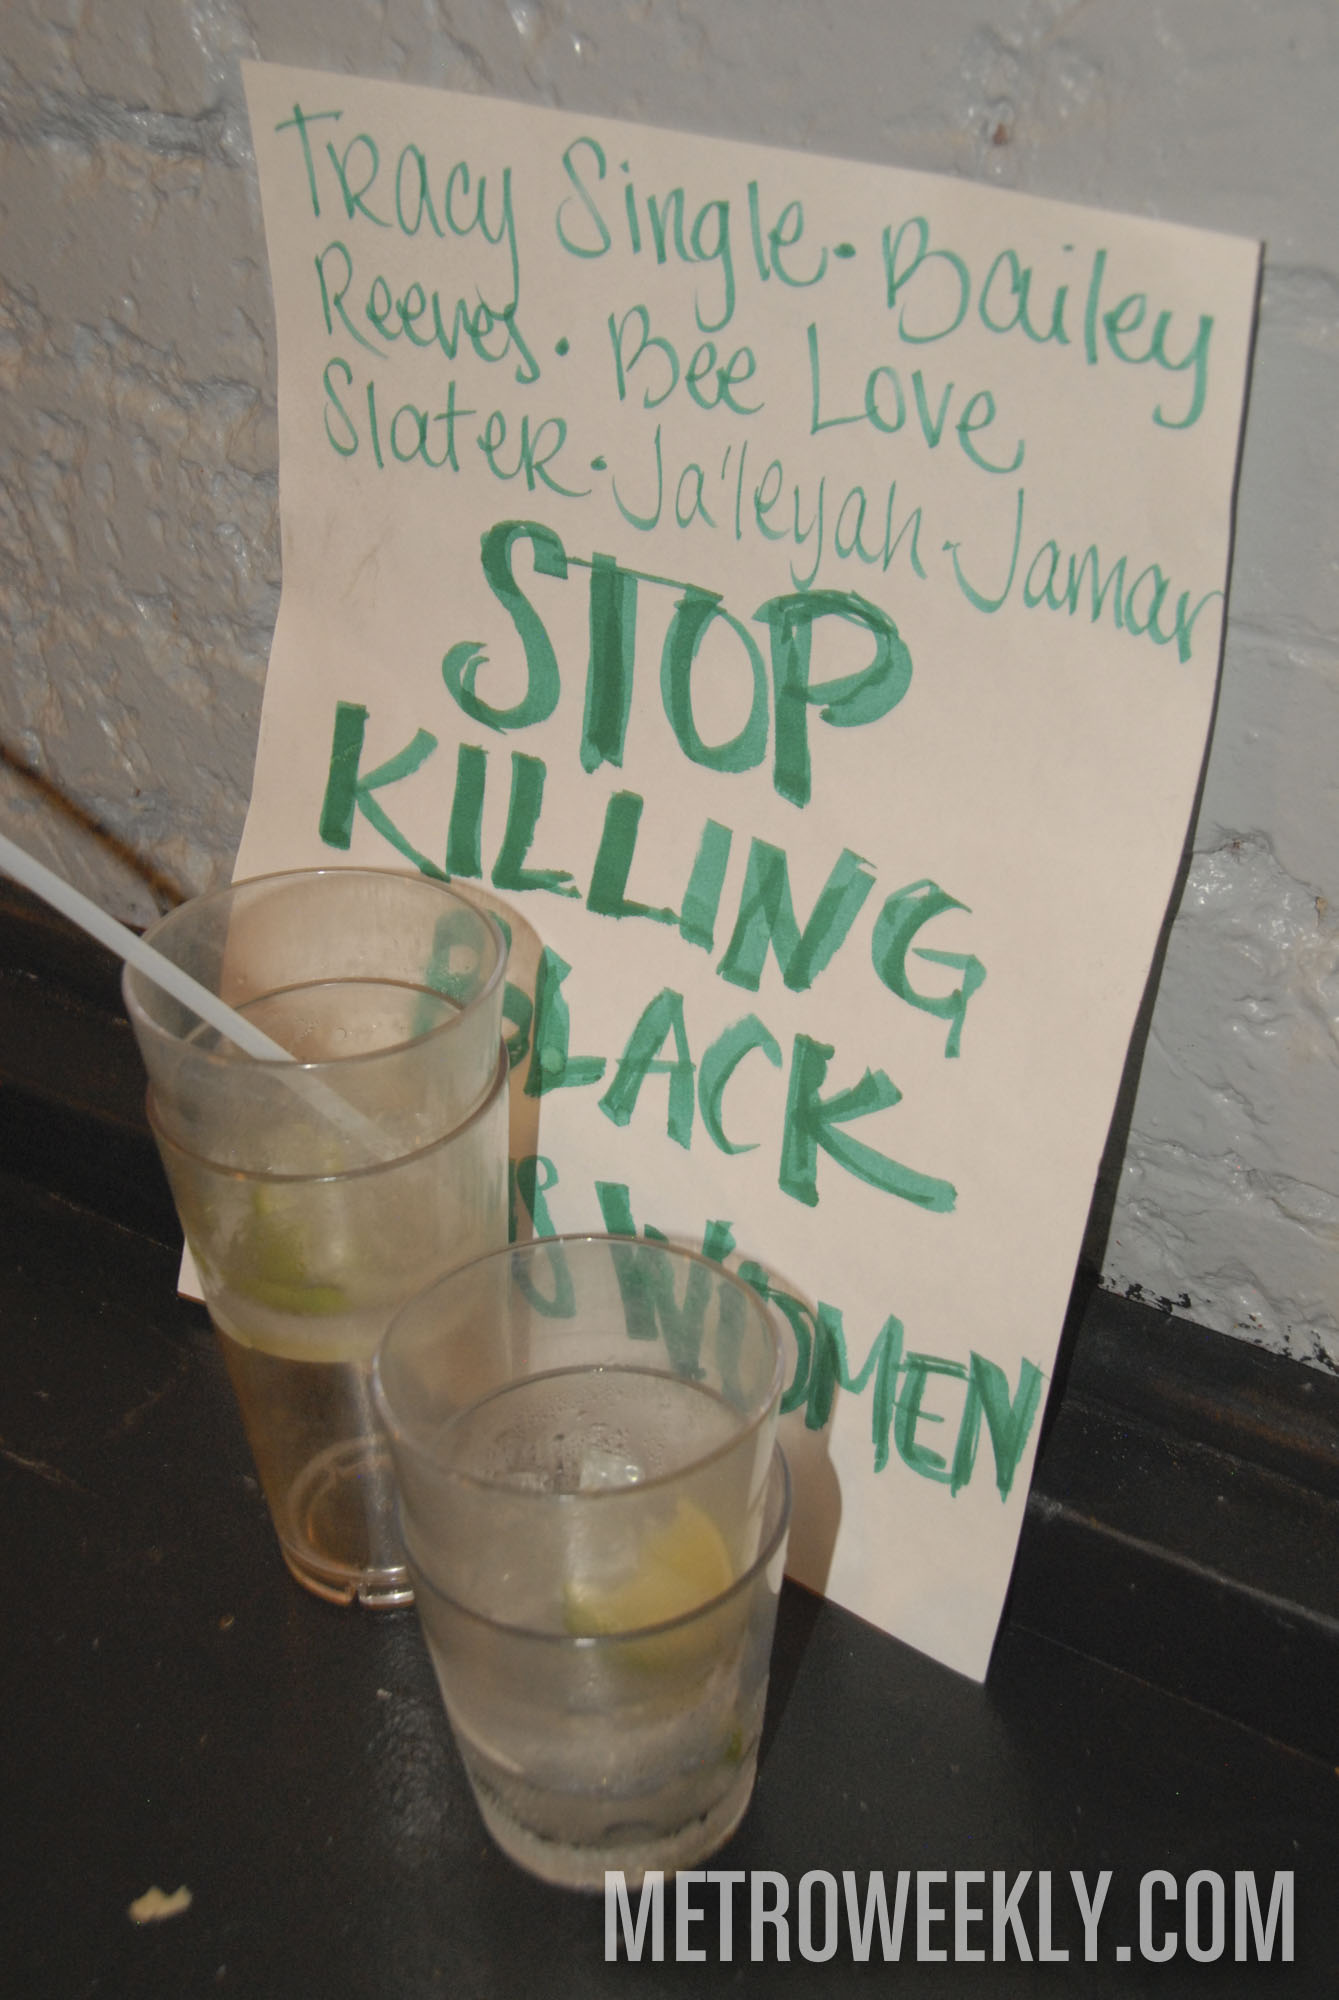 Tracy Single · Bailey
Reeves · Bee Love
Slater · Ja'leyah · Jamar
STOP
KILLING
BLACK
WOMEN
METROWEEKLY.COM